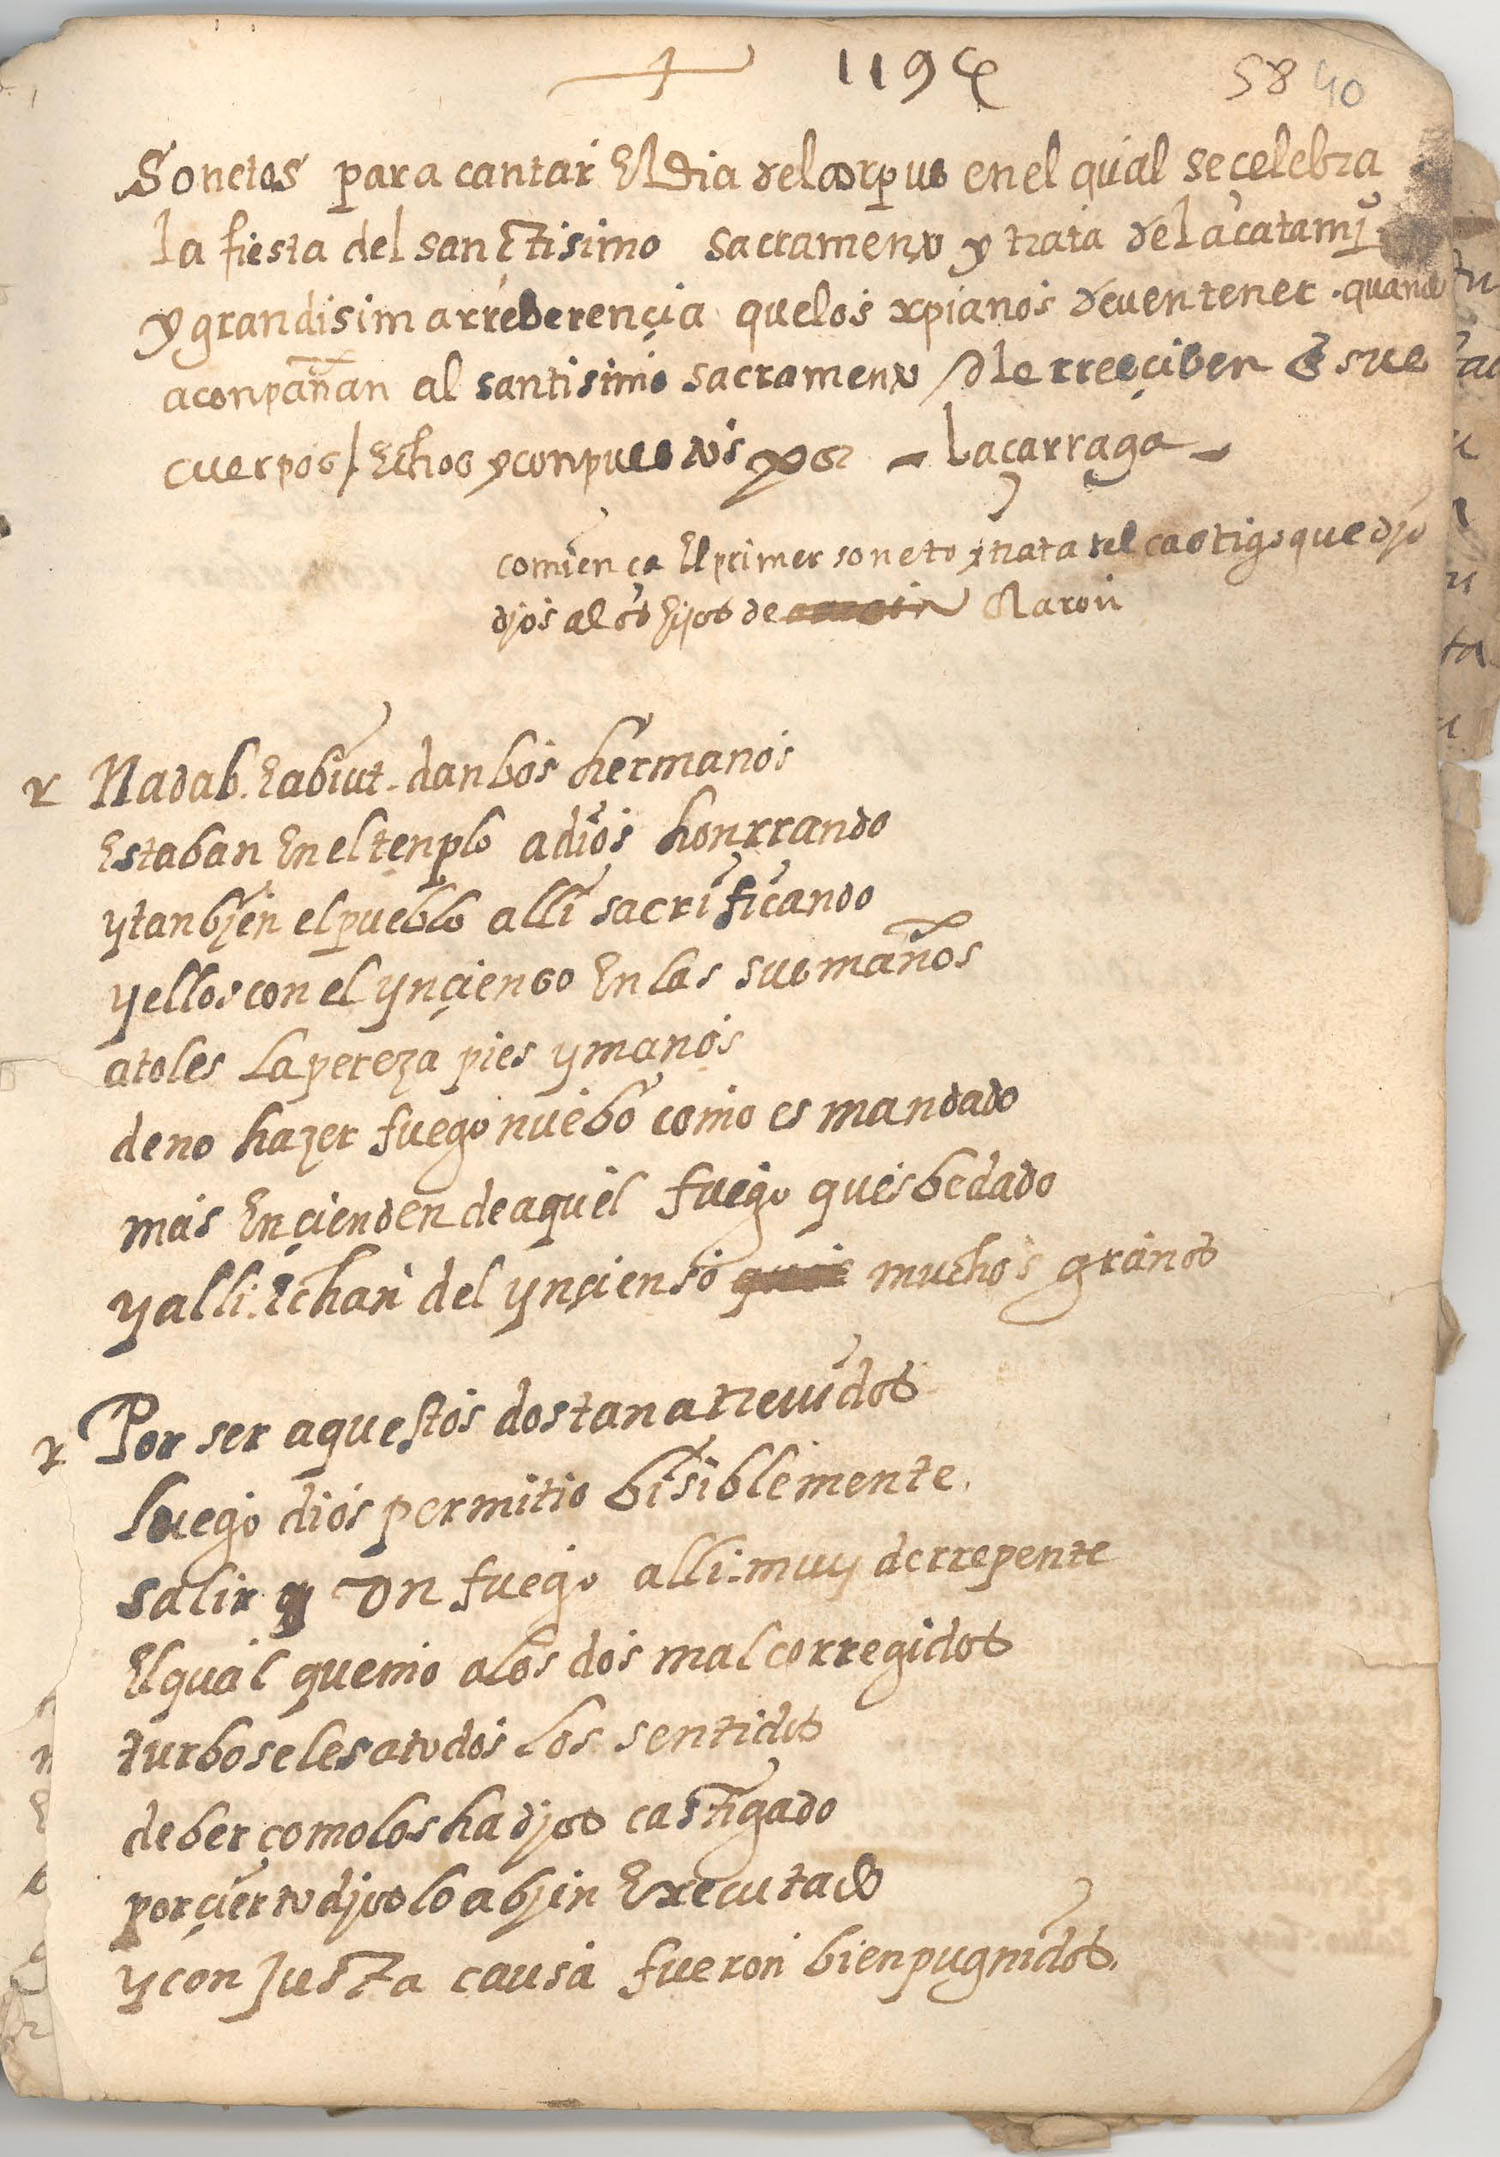 1194
58 40
Sonetos para cantar El Dia del corpus en el qual se celebra
la fiesta del sanctisimo sacramento y trata del acatamj
y grandisima rreberençia que los xpianos deven tener quando
aconpañan al santisimo sacramento / O le rreçiben En sus
cuerpos / Echos y conpuestos por - Laçarraga -
comiença El primer soneto y trata del castigo que djo
djos a los hijos de Aaron
Nadab. E abiut. d anbos hermanos
Estaban En el tenplo a dios honrrando
y tanbjen el pueblo alli sacrificando
y ellos con el ynçienso En las sus manos
atoles la pereza pies y manos
de no hazer fuego nuebo como es mandado
mas Ençienden de aquel fuego qu es bedado
y alli. Echan del ynçienso muchos granos
Por ser aquestos dos tan atrevidos
luego dios permitio bisiblemente.
salir Un fuego alli. muy de rrepente
El qual quemo a los dos mal corregidos
turboseles a todos los sentidos
de ber como los ha djos castigado
por çierto djos lo a bjin Executado
y con Justa causa fueron bien pugnidos.